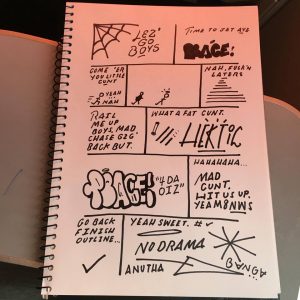 LEZ'
GO
BOYS
TIME TO SET AVE
PEACE!
COME 'ER
YOU LITTLE
CUNT
YEAH
NAH
NAH, FUCK'N
LAYERS
RAIL
ME UP
BOYS, MAD,
CHASE G2G
BACK BUT.
WHAT A FAT CUNT.
HEKTIC
PEACE!
"4 DA
OIZ"
HAHAHAHA...
MAD
CUNT.
HIT US UP.
YEAM8NWS
GO BACK
FINISH
OUTLINE...
YEAH SWEET. #✓
NO DRAMA
ANUTHA
BANGA